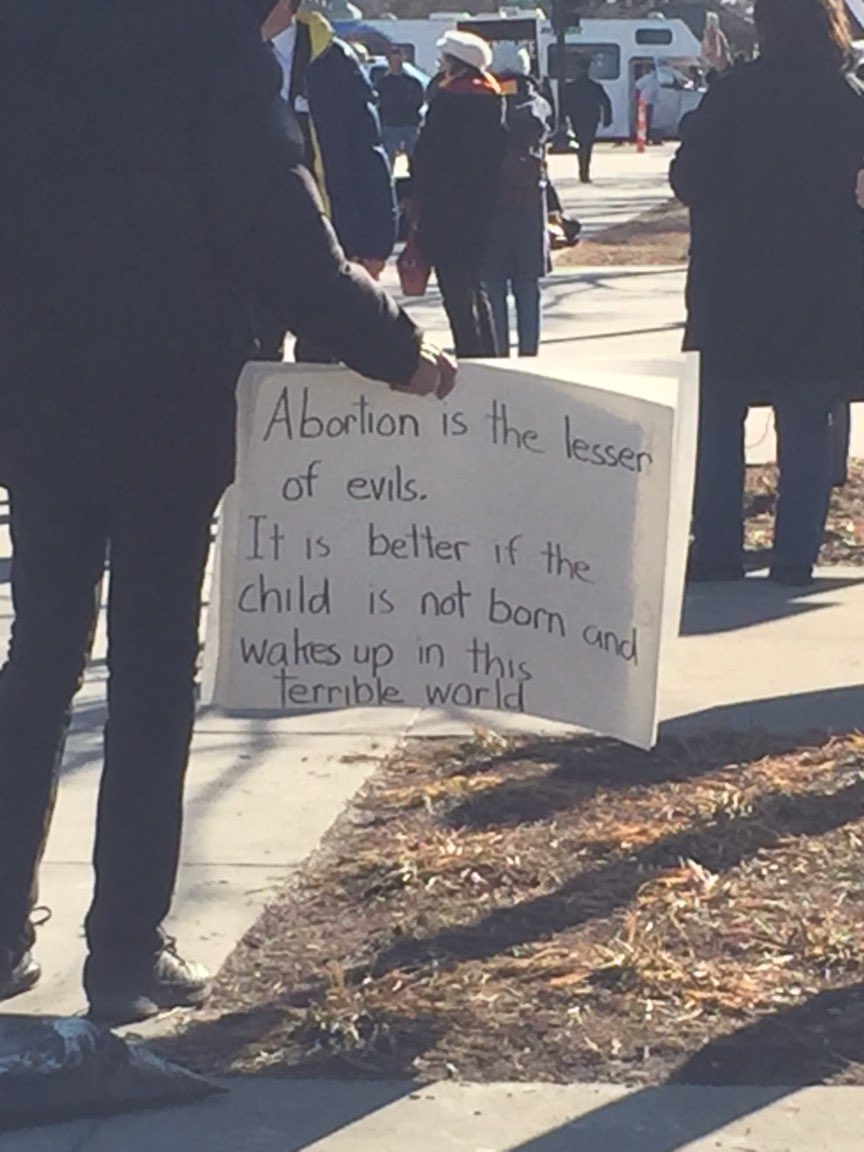 Abortion is the lesser
of evils.
It is better if the
child is not born and
wakes up in this
terrible world